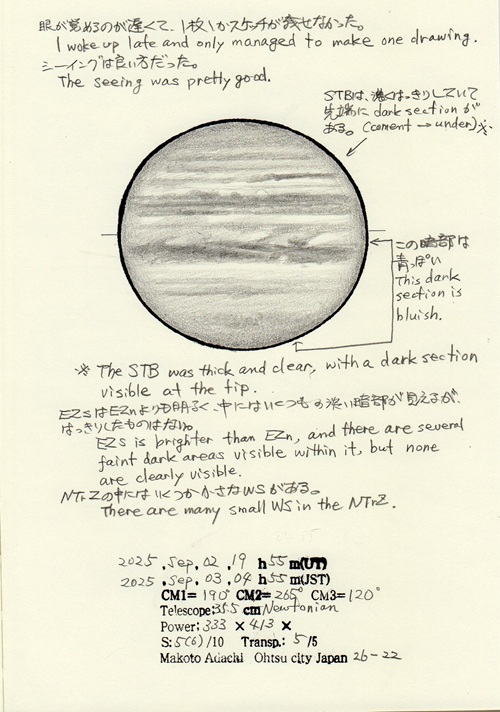 眼が覚めるのが遅くて、1枚しかスケッチが残せなかった。
I woke up late and only managed to make one drawing.
シーイングは良い方だった。
The seeing was pretty good.
STBは、濃くはっきりしていて
先端に dark section が
ある。(coment → under)※
この暗部は
青っぽい
This dark
section is
bluish.
※ The STB was thick and clear, with a dark section
visible at the tip.
EZsはEZnよりも明るく、中にはいくつもの淡い暗部が見えるが、
はっきりしたものはない。
EZs is brighter than EZn, and there are several
faint dark areas visible within it, but none
are clearly visible.
NTrZの中にはいくつか小さなWSがある。
There are many small WS in the NTrZ.
2025 . Sep. 02 . 19 h 55 m(UT)
2025 . Sep. 03 . 04 h 55 m(JST)
CM1= 190° CM2= 265° CM3= 120°
Telescope: 35.5 cm Newtonian
Power: 333 × 413 ×
S: 5(6) /10 Transp.: 5 /5
Makoto Adachi Ohtsu city Japan 26-22